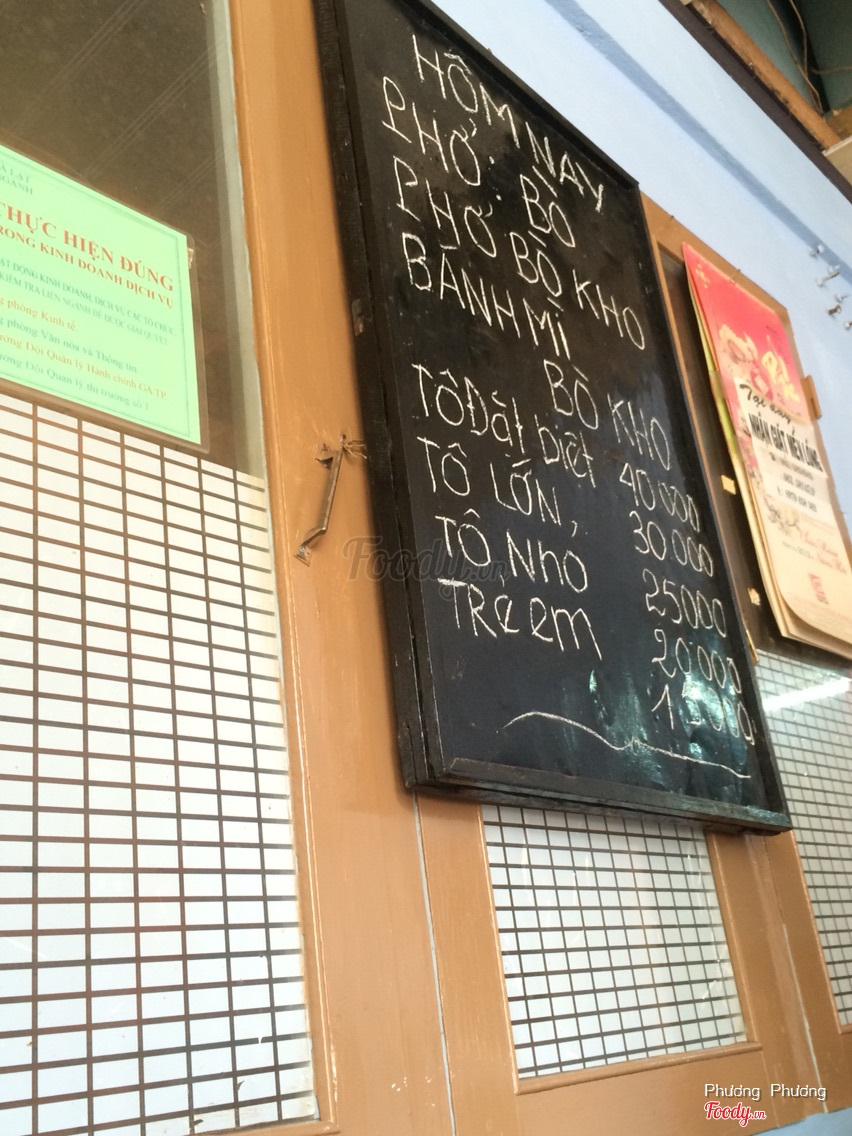 HÔM NAY
PHỞ: BÒ
PHỞ BÒ KHO
BÁNH MÌ BÒ KHO
TÔ Đặt biệt 40000
TÔ LỚN, 30.000
TÔ NHỎ 25000
TRẺ em 20.000
15000
THỰC HIỆN ĐÚNG
TRONG KINH DOANH DỊCH VỤ
ẠT ĐỘNG KINH DOANH, DỊCH VỤ, CÁC TỔ CHỨC
KIỂM TRA LIÊN NGÀNH ĐỂ ĐƯỢC GIẢI QUYẾT
g phòng Kinh tế.
g phòng Văn hóa và Thông tin
ưởng Đội Quản lý Hành chính CA.TP
ưởng Đội Quản lý thị trường số 1
Tại đây
NHẬN ĐẶT
Foody.vn
Phương Phương
Foody.vn